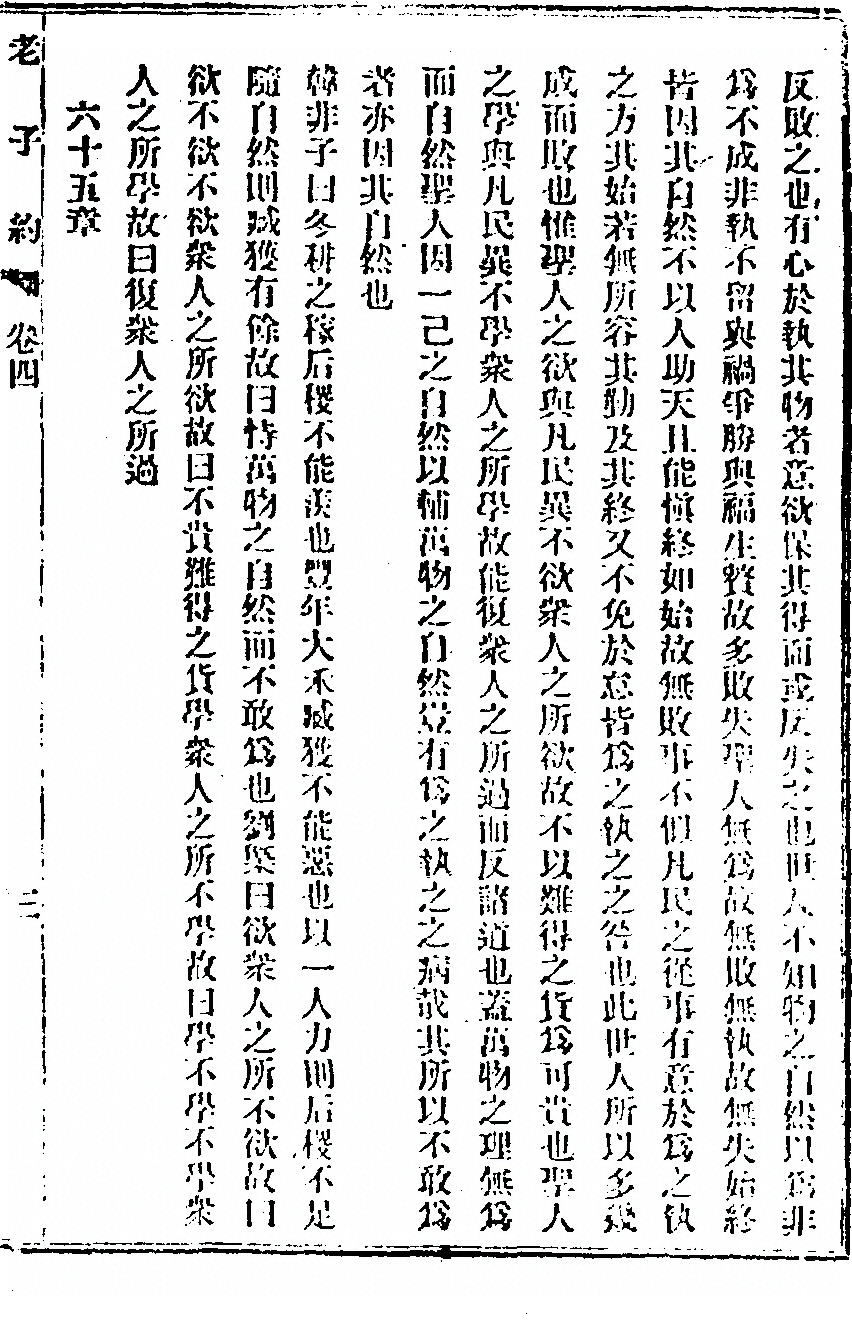 反敗之也有心於執其物者意欲保其得而或反失之也世人不知物之自然以爲非
爲不成非執不留與禍爭勝與福生贅故多敗失聖人無爲故無敗無執故無失始終
皆因其自然不以人助天且能愼終如始故無敗事不但凡民之從事有意於爲之執
之方其始若無所容其勤及其終又不免於怠皆爲之執之之咎也此世人所以多幾
成而敗也惟聖人之欲與凡民異不欲衆人之所欲故不以難得之貨爲可貴也聖人
之學與凡民異不學衆人之所學故能復衆人之所過而反諸道也蓋萬物之理無爲
而自然聖人因一己之自然以輔萬物之自然豈有爲之執之之病哉其所以不敢爲
者亦因其自然也
韓非子曰冬耕之稼后稷不能羨也豐年大禾臧獲不能惡也以一人力則后稷不足
隨自然則臧獲有餘故曰恃萬物之自然而不敢爲也劉槩曰欲衆人之所不欲故曰
欲不欲不欲衆人之所欲故曰不貴難得之貨學衆人之所不學故曰學不學不學衆
人之所學故曰復衆人之所過
六十五章
老子約
卷四